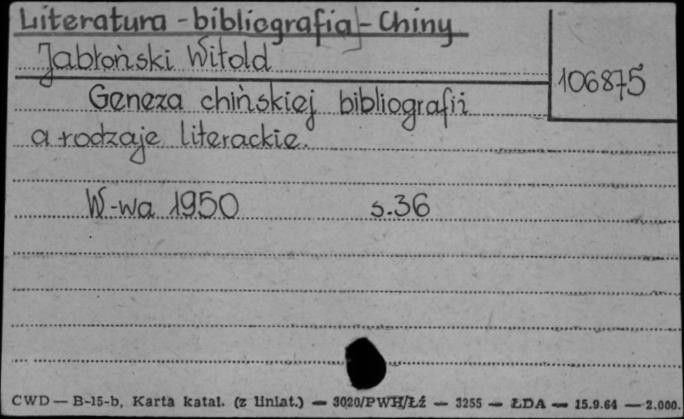 Literatura - bibliografia - Chiny
Jabłoński Witold
106875
Geneza chińskiej bibliografii
a rodzaje literackie.
W-wa 1950 s.36
CWD — B-15-b, Karta katal. (z liniat.) — 3020/PWH/Łź — 3255 — ŁDA — 15.9.64 — 2.000.